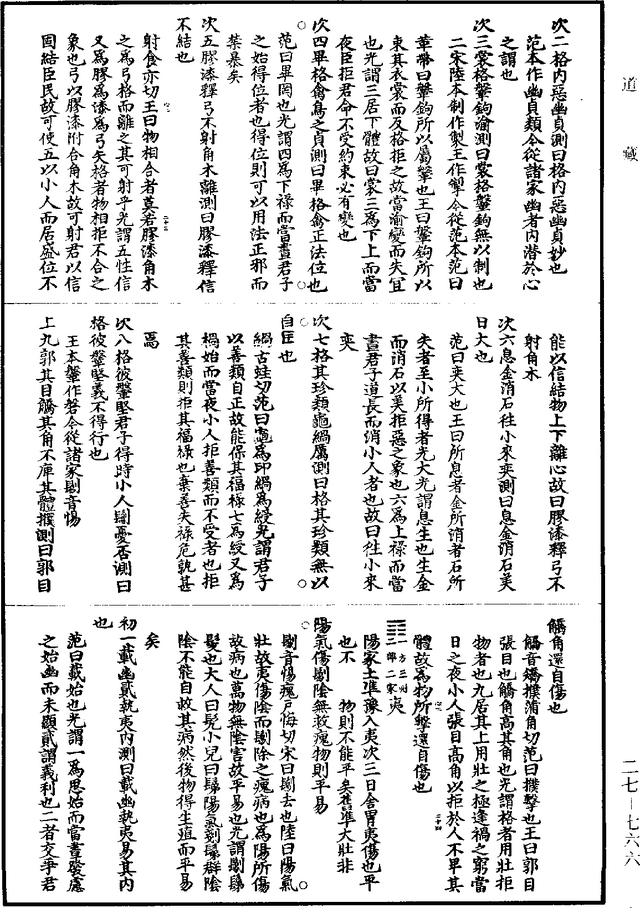 道藏
次二格内惡幽貞測曰格内惡幽貞妙也
范本作幽貞類今從諸家幽者内潜於心
之謂也
次三裳格鞶鉤渝測曰裳格鞶鉤無以制也
二宋陸本制作製王作掣今從范本范曰
革帶曰鞶鉤所以屬鞶也王曰鞶鉤所以
束其衣裳而反格拒之故當渝變而失宜
也光謂三居下體故曰裳三爲下上而當
夜臣拒君命不受約束必有變也
次四畢格禽鳥之貞測曰畢格禽正法位也
范曰畢罔也光謂四爲下禄而當晝君子
之始得位者也得位則可以用法正邪而
禁暴矣
次五膠漆釋弓不射角木離測曰膠漆釋信
不結也
射食亦切王曰物相合者莫若膠漆角木
之爲弓格而離之其可射乎光謂五性信
又爲膠爲漆爲弓矢格者物相拒不合之
象也弓以膠漆附合角木故可射君以信
固結臣民故可使五以小人而居盛位不
能以信結物上下離心故曰膠漆釋弓不
射角木
次六息金消石往小來奕測曰息金消石美
日大也
范曰奕大也王曰所息者金所消者石所
失者至小所得者光大光謂息生也生金
而消石以美拒惡之象也六爲上禄而當
晝君子道長而消小人者也故曰往小來
奕
次七格其珍類龜緺厲測曰格其珍類無以
自匡也
緺古蛙切范曰龜爲印緺爲綬光謂君子
以善類自正故能保其福禄七爲綬又爲
禍始而當夜小人拒善類而不受者也拒
其善類則拒其福禄也棄善失禄危孰甚
焉
次八格彼鞶堅君子得時小人剔憂否測曰
格彼鞶堅義不得行也
王本鞶作磐今從諸家剔音惕
上九郭其目觿其角不庳其體撲測曰郭目
觿角還自傷也
觿音觿撲蒲角切范曰撲擊也王曰郭目
張目也觿角高其角也光謂格者用壯拒
物者也九居其上用壯之極逢禍之窮當
日之夜小人張目高角以拒於人不卑其
體故爲物所擊還自傷也
一方三州二部二家夷
陽家土準豫入夷次三日舍胃夷傷也平
也不　物則不能平矣舊準大壯非
陽氣傷剔陰無救瘣物則平易
剔音惕瘣户悔切宋曰剔去也陸曰陽氣
壯故夷傷陰而剔除之瘣病也爲陽所傷
故病也萬物無陰害故平易也光謂剔鬄
髮也大人曰髡小兒曰鬄陽氣剔鬄群陰
陰不能自救其病然後物得生殖而平易
矣
初一載幽貳執夷内測曰載幽執夷易其内
也
范曰載始也光謂一爲思始而當晝發慮
之始幽而未顯貳謂義利也二者交爭君
二七—七六六